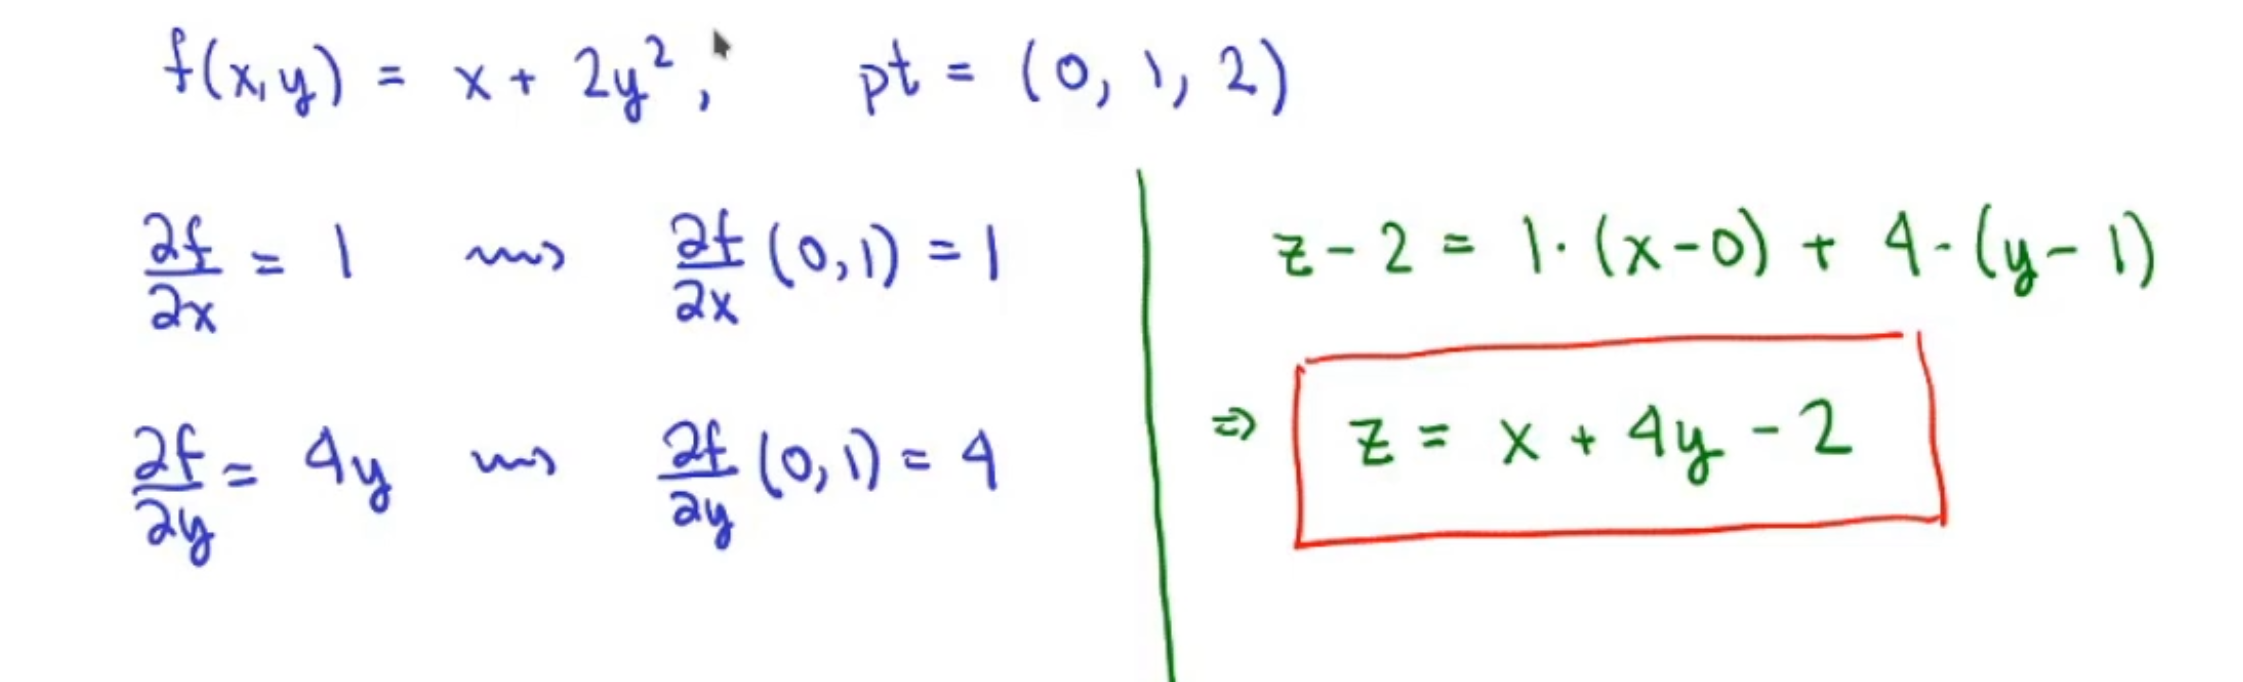 f(x,y) = x + 2y², pt = (0, 1, 2)
∂f/∂x = 1 ⇝ ∂f/∂x (0,1) = 1
∂f/∂y = 4y ⇝ ∂f/∂y (0,1) = 4
z - 2 = 1·(x-0) + 4·(y-1)
⇒ z = x + 4y - 2